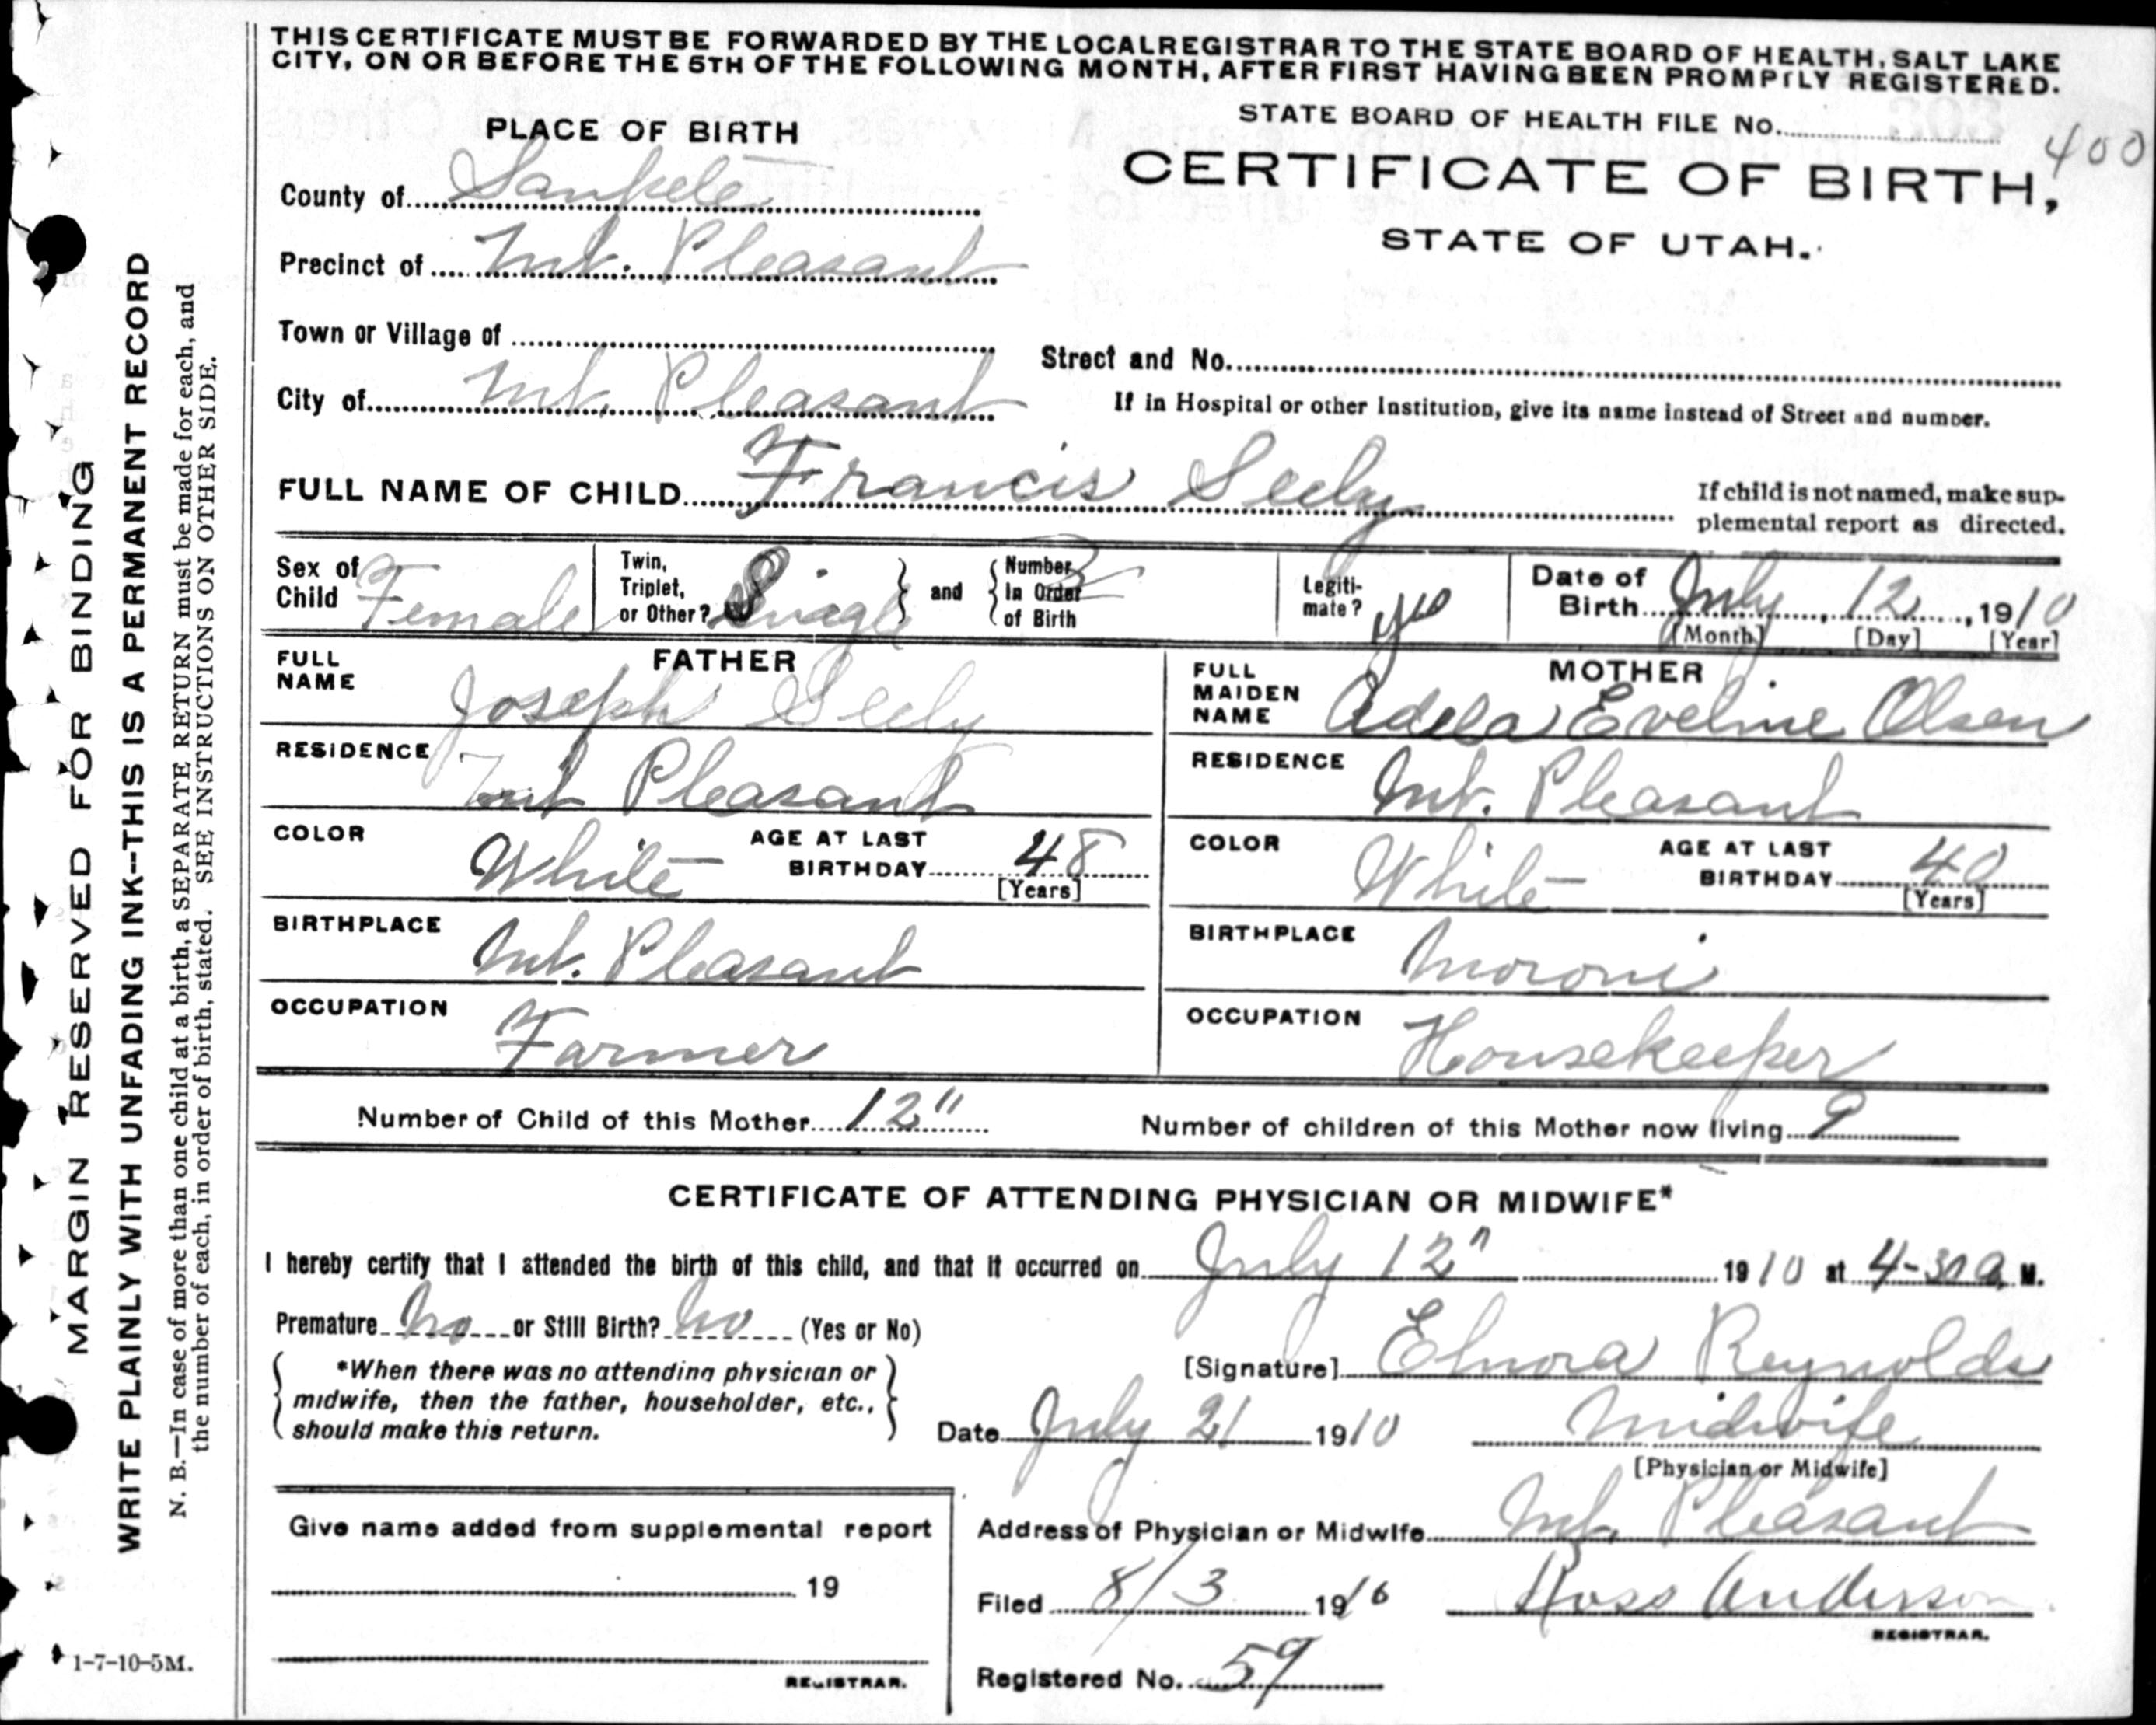 THIS CERTIFICATE MUST BE FORWARDED BY THE LOCAL REGISTRAR TO THE STATE BOARD OF HEALTH, SALT LAKE
CITY, ON OR BEFORE THE 5TH OF THE FOLLOWING MONTH, AFTER FIRST HAVING BEEN PROMPTLY REGISTERED.
PLACE OF BIRTH
STATE BOARD OF HEALTH FILE No. 400
County of Sanpete
CERTIFICATE OF BIRTH,
STATE OF UTAH.
Precinct of Mt. Pleasant
Town or Village of
Street and No.
City of Mt. Pleasant
If in Hospital or other Institution, give its name instead of Street and number.
FULL NAME OF CHILD Francis Seely
If child is not named, make sup-
plemental report as directed.
Sex of Child Female
Twin, Triplet, or Other? Single and Number In Order of Birth
Legiti-mate? yes
Date of Birth July, 12, 1910
[Month] [Day] [Year]
FATHER
FULL NAME Joseph Seely
RESIDENCE Mt Pleasant
COLOR White AGE AT LAST BIRTHDAY 48
[Years]
BIRTHPLACE Mt. Pleasant
OCCUPATION Farmer
MOTHER
FULL MAIDEN NAME Adella Eveline Olsen
RESIDENCE Mt. Pleasant
COLOR White AGE AT LAST BIRTHDAY 40
[Years]
BIRTHPLACE Moroni
OCCUPATION Housekeeper
Number of Child of this Mother 12" Number of children of this Mother now living 9
CERTIFICATE OF ATTENDING PHYSICIAN OR MIDWIFE*
I hereby certify that I attended the birth of this child, and that it occurred on July 12" 1910 at 4-30 a M.
Premature No or Still Birth? No (Yes or No)
*When there was no attending physician or
midwife, then the father, householder, etc.,
should make this return.
[Signature] Elnora Reynolds
Date July 21 1910 Midwife
[Physician or Midwife]
Give name added from supplemental report
19
REGISTRAR.
Address of Physician or Midwife Mt. Pleasant
Filed 8/3 1910 Ross Anderson
REGISTRAR.
Registered No. 59
MARGIN RESERVED FOR BINDING
WRITE PLAINLY WITH UNFADING INK--THIS IS A PERMANENT RECORD
N. B.—In case of more than one child at a birth, a SEPARATE RETURN must be made for each, and
the number of each, in order of birth, stated. SEE INSTRUCTIONS ON OTHER SIDE.
1-7-10-5M.